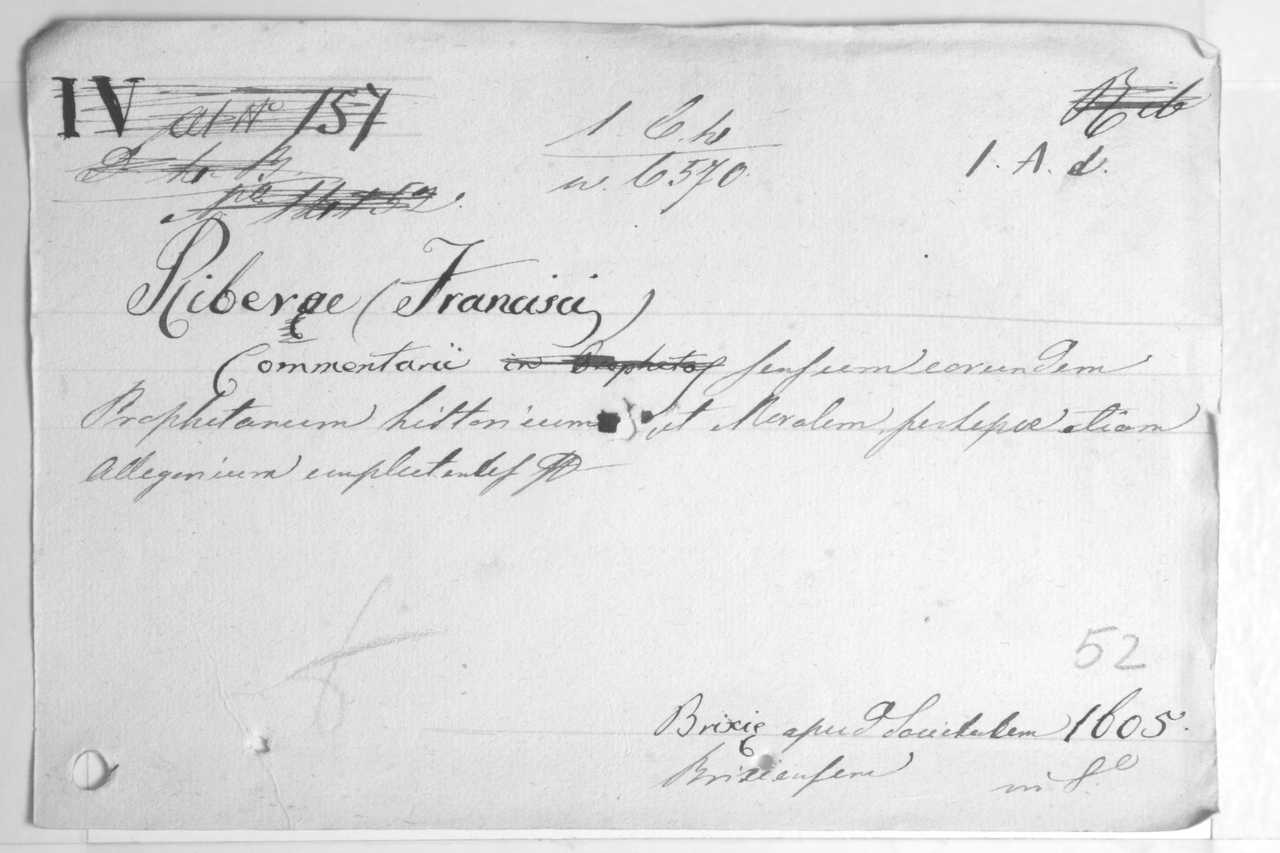 IV At N° 157
Rib
1 C. h.
1. A. d.
n. 6570.
Riberae (Francisci)
Commentarii in Prophetas sensum eorundem
Prophetarum historicum et Moralem, persaepe etiam
Allegoricum complectentes
52
Brixię apud Societatem 1605.
Brixiensem in 8.°